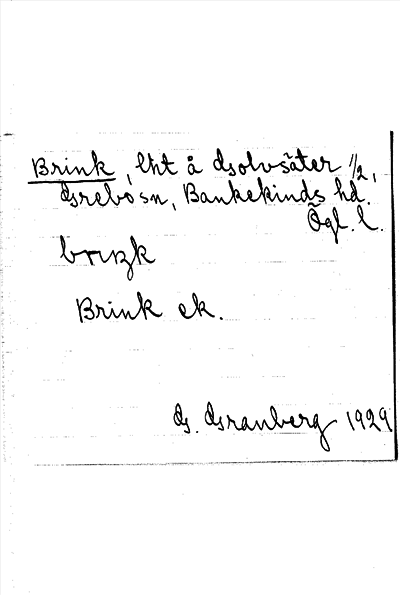 Brink, lht å Golvsäter 1/2,
Grebo sn, Bankekinds hd.
Ögl. l.
Brink ek.
G. Granberg 1929